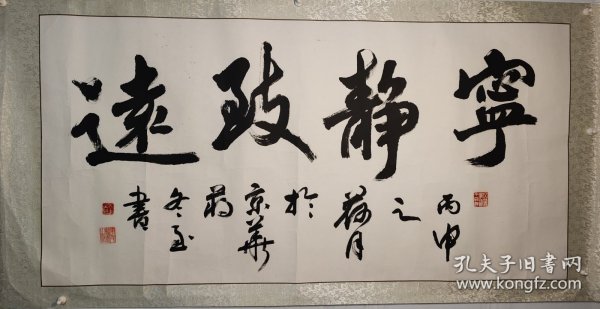 寧靜致遠
丙申
之
荷月
於
京華
蔣
冬至
書
孔夫子旧書网
www.kongfz.com